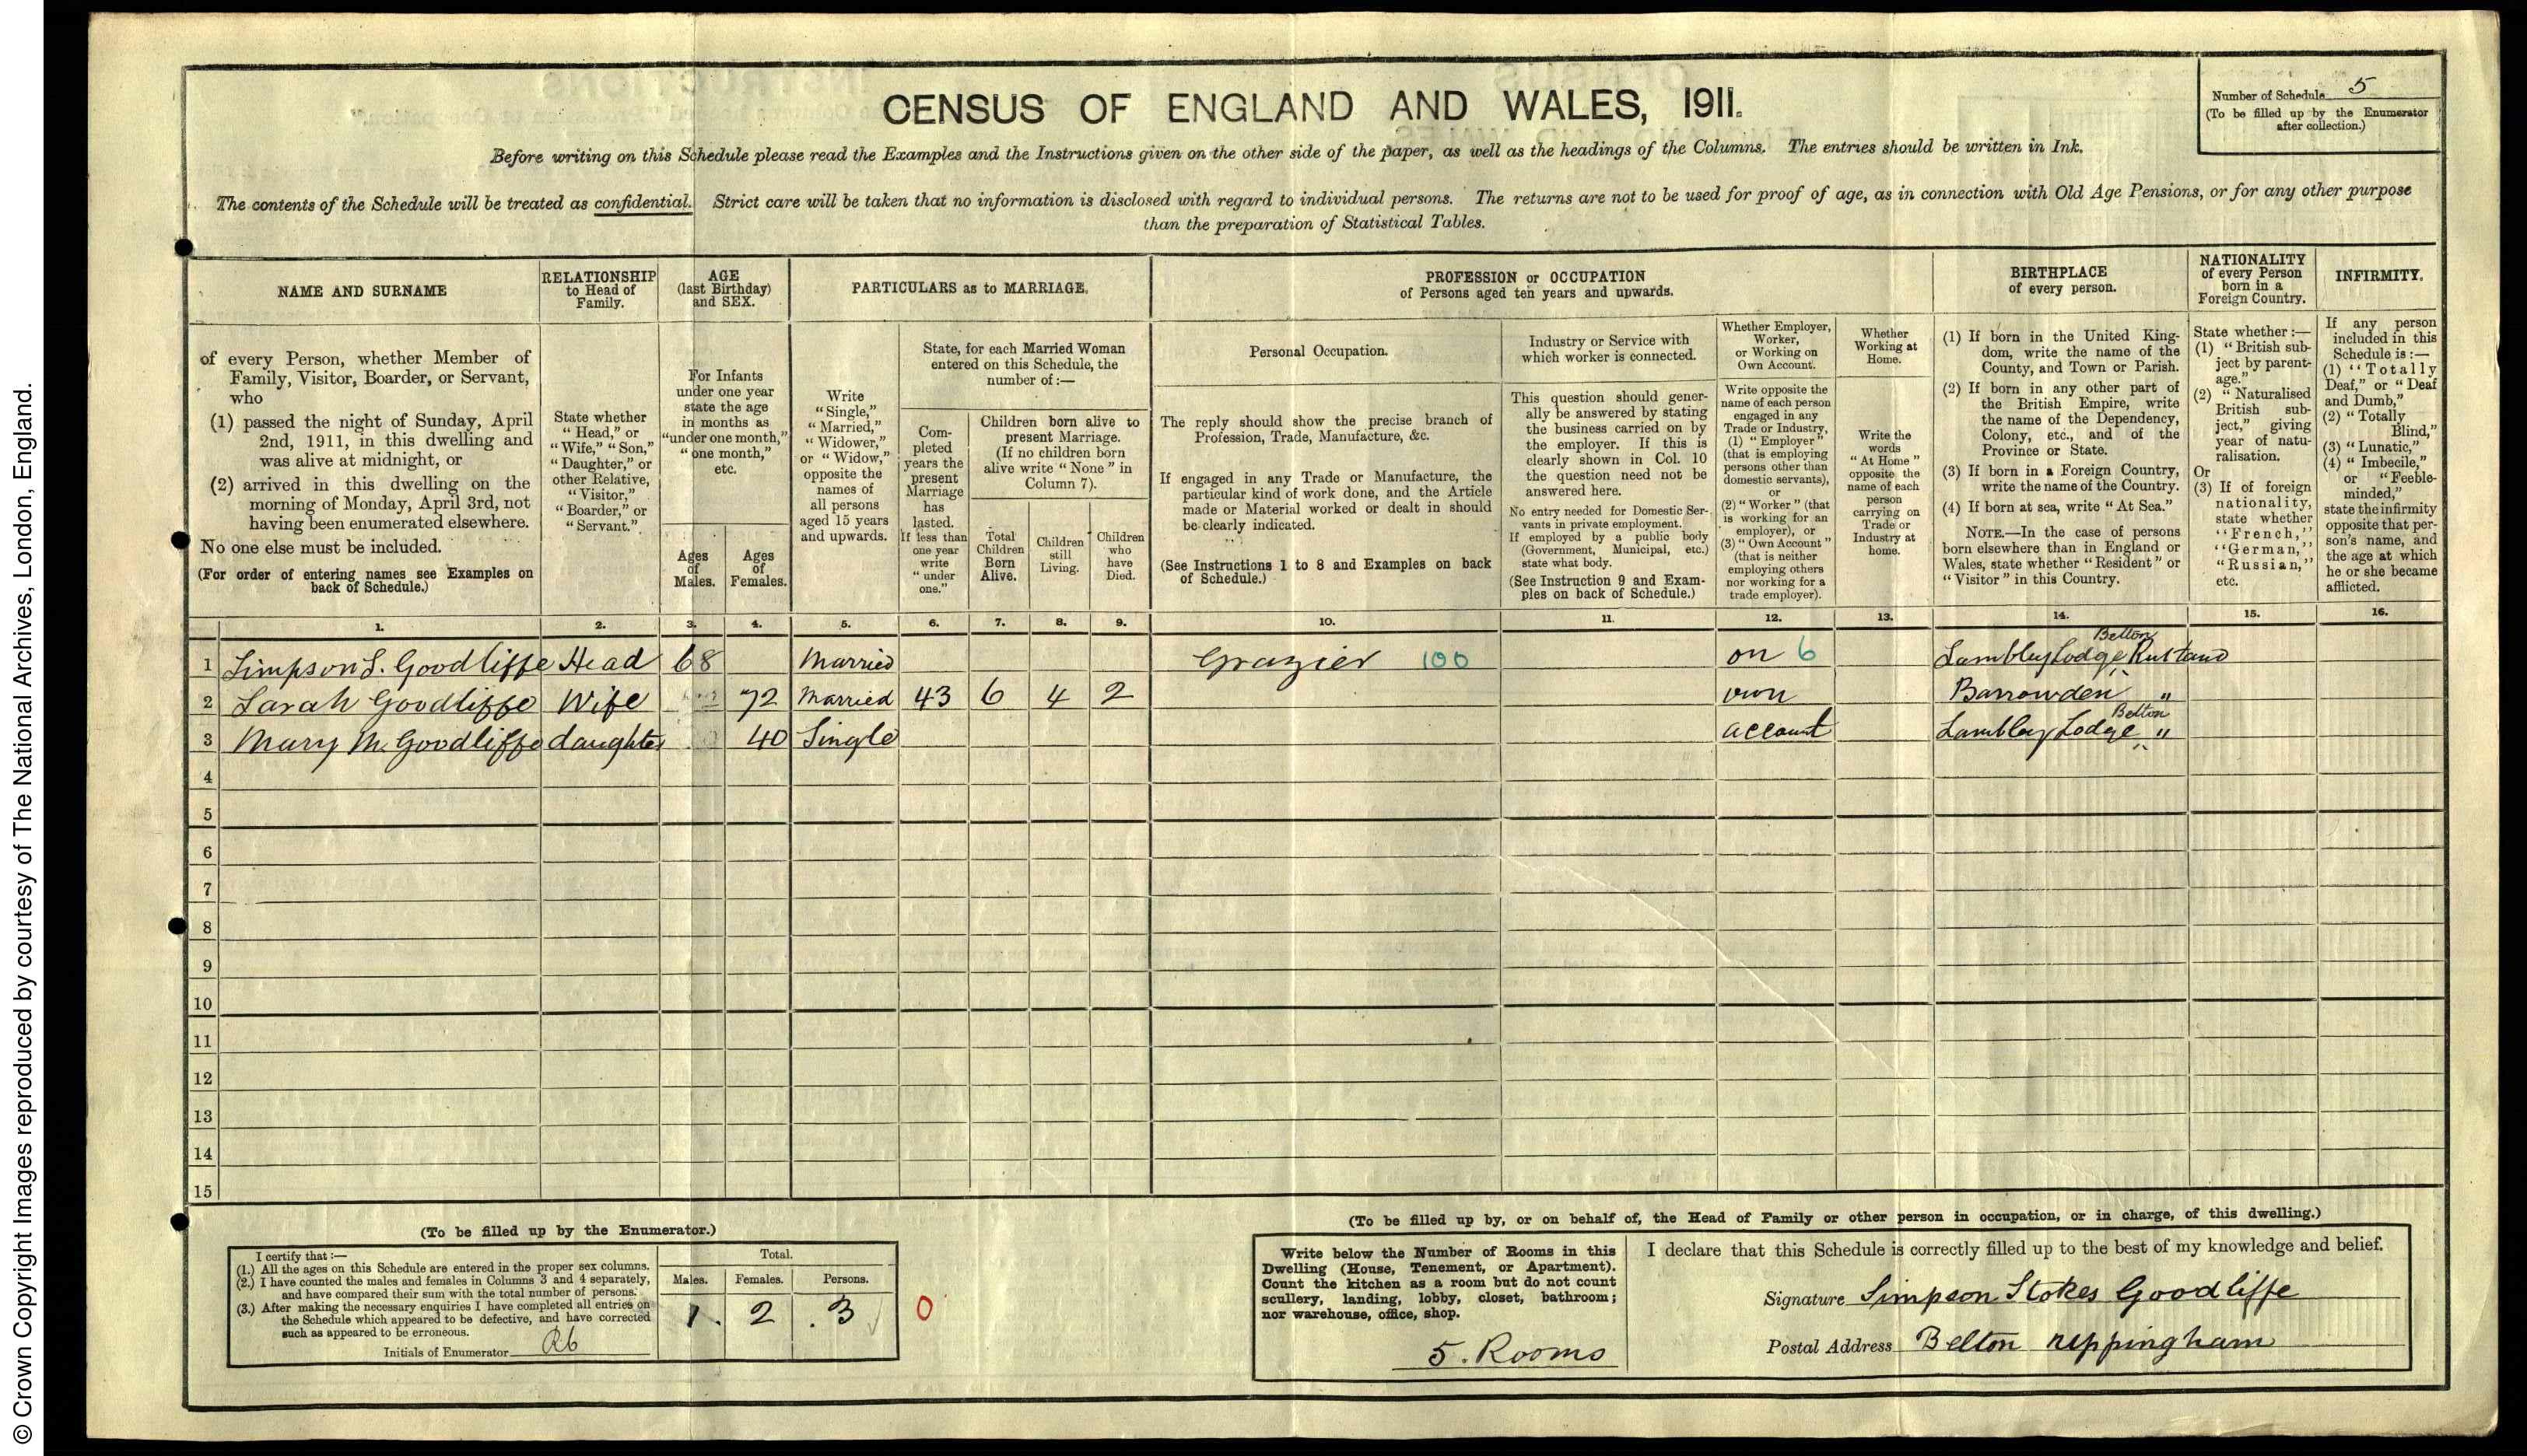 © Crown Copyright Images reproduced by courtesy of The National Archives, London, England.
CENSUS OF ENGLAND AND WALES, 1911.
Number of Schedule 5
(To be filled up by the Enumerator
after collection.)
Before writing on this Schedule please read the Examples and the Instructions given on the other side of the paper, as well as the headings of the Columns. The entries should be written in Ink.
The contents of the Schedule will be treated as confidential. Strict care will be taken that no information is disclosed with regard to individual persons. The returns are not to be used for proof of age, as in connection with Old Age Pensions, or for any other purpose
than the preparation of Statistical Tables.
NAME AND SURNAME
of every Person, whether Member of
Family, Visitor, Boarder, or Servant,
who
(1) passed the night of Sunday, April
2nd, 1911, in this dwelling and
was alive at midnight, or
(2) arrived in this dwelling on the
morning of Monday, April 3rd, not
having been enumerated elsewhere.
No one else must be included.
(For order of entering names see Examples on
back of Schedule.)
RELATIONSHIP
to Head of
Family.
State whether
"Head," or
"Wife," "Son,"
"Daughter," or
other Relative,
"Visitor,"
"Boarder," or
"Servant."
AGE
(last Birthday)
and SEX.
For Infants
under one year
state the age
in months as
"under one month,"
"one month,"
etc.
Ages
of
Males.
Ages
of
Females.
PARTICULARS as to MARRIAGE.
Write
"Single,"
"Married,"
"Widower,"
or "Widow,"
opposite the
names of
all persons
aged 15 years
and upwards.
State, for each Married Woman
entered on this Schedule, the
number of:—
Com-
pleted
years the
present
Marriage
has
lasted.
If less than
one year
write
"under
one."
Children born alive to
present Marriage.
(If no children born
alive write "None" in
Column 7).
Total
Children
Born
Alive.
Children
still
Living.
Children
who
have
Died.
PROFESSION or OCCUPATION
of Persons aged ten years and upwards.
Personal Occupation.
The reply should show the precise branch of
Profession, Trade, Manufacture, &c.
If engaged in any Trade or Manufacture, the
particular kind of work done, and the Article
made or Material worked or dealt in should
be clearly indicated.
(See Instructions 1 to 8 and Examples on back
of Schedule.)
Industry or Service with
which worker is connected.
This question should gener-
ally be answered by stating
the business carried on by
the employer. If this is
clearly shown in Col. 10
the question need not be
answered here.
No entry needed for Domestic Ser-
vants in private employment.
If employed by a public body
(Government, Municipal, etc.)
state what body.
(See Instruction 9 and Exam-
ples on back of Schedule.)
Whether Employer,
Worker,
or Working on
Own Account.
Write opposite the
name of each person
engaged in any
Trade or Industry,
(1) "Employer"
(that is employing
persons other than
domestic servants),
or
(2) "Worker" (that
is working for an
employer), or
(3) "Own Account"
(that is neither
employing others
nor working for a
trade employer).
Whether
Working at
Home.
Write the
words
"At Home"
opposite the
name of each
person
carrying on
Trade or
Industry at
home.
BIRTHPLACE
of every person.
(1) If born in the United King-
dom, write the name of the
County, and Town or Parish.
(2) If born in any other part of
the British Empire, write
the name of the Dependency,
Colony, etc., and of the
Province or State.
(3) If born in a Foreign Country,
write the name of the Country.
(4) If born at sea, write "At Sea."
NOTE.—In the case of persons
born elsewhere than in England or
Wales, state whether "Resident" or
"Visitor" in this Country.
NATIONALITY
of every Person
born in a
Foreign Country.
State whether:—
(1) "British sub-
ject by parent-
age."
(2) "Naturalised
British sub-
ject," giving
year of natu-
ralisation.
Or
(3) If of foreign
nationality,
state whether
"French,"
"German,"
"Russian,"
etc.
INFIRMITY.
If any person
included in this
Schedule is:—
(1) "Totally
Deaf," or "Deaf
and Dumb,"
(2) "Totally
Blind,"
(3) "Lunatic,"
(4) "Imbecile,"
or "Feeble-
minded,"
state the infirmity
opposite that per-
son's name, and
the age at which
he or she became
afflicted.
1. 2. 3. 4. 5. 6. 7. 8. 9. 10. 11. 12. 13. 14. 15. 16.
Belton
1 Simpson S. Goodliffe Head 68 Married Grazier 100 on 6 Lambley Lodge Rutland
2 Sarah Goodliffe Wife 72 Married 43 6 4 2 own Barrowden "
Belton
3 Mary M. Goodliffe daughter 40 Single account Lambley Lodge "
4
5
6
7
8
9
10
11
12
13
14
15
(To be filled up by the Enumerator.)
I certify that:—
(1.) All the ages on this Schedule are entered in the proper sex columns.
(2.) I have counted the males and females in Columns 3 and 4 separately,
and have compared their sum with the total number of persons.
(3.) After making the necessary enquiries I have completed all entries on
the Schedule which appeared to be defective, and have corrected
such as appeared to be erroneous.
Initials of Enumerator
Total.
Males. Females. Persons.
1. 2 3
0
(To be filled up by, or on behalf of, the Head of Family or other person in occupation, or in charge, of this dwelling.)
Write below the Number of Rooms in this
Dwelling (House, Tenement, or Apartment).
Count the kitchen as a room but do not count
scullery, landing, lobby, closet, bathroom;
nor warehouse, office, shop.
5. Rooms
I declare that this Schedule is correctly filled up to the best of my knowledge and belief.
Signature Simpson Stokes Goodliffe
Postal Address Belton uppingham